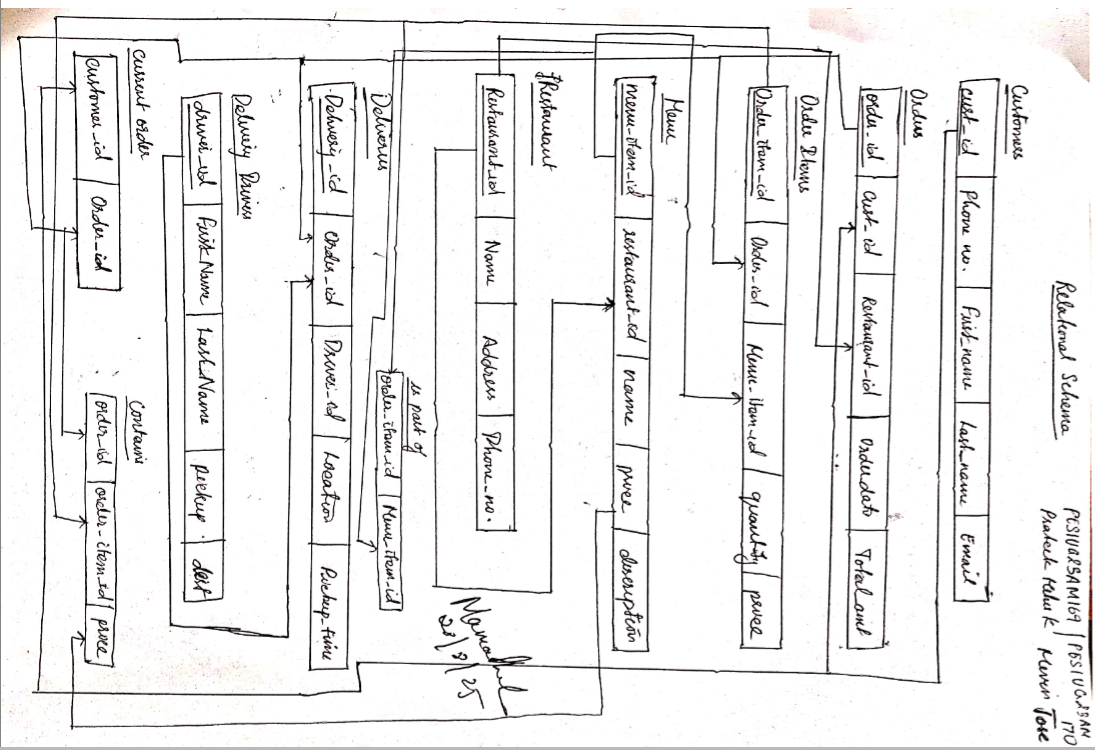 PES1UG23AM169 | PES1UG23AM170
Prateek Kevin Jose
Relational Schema
Customers
cust_id Phone no. First_name Last_name Email
Orders
order_id Cust_id Restaurant_id Orderdate Total amt
Order Items
Order_item_id Order_id Menu_item_id quantity price
Menu
menu_item_id restaurant_id name price description
Restaurant
Restaurant_id Name Address Phone_no.
is part of
order_item_id Menu_item_id
Deliveries
Delivery_id Order_id Driver_id Location Pickup_time
Delivery Drivers
driver_id First Name Last_Name pickup. dest
current order
customer_id Order_id
Contains
order_id order_item_id price